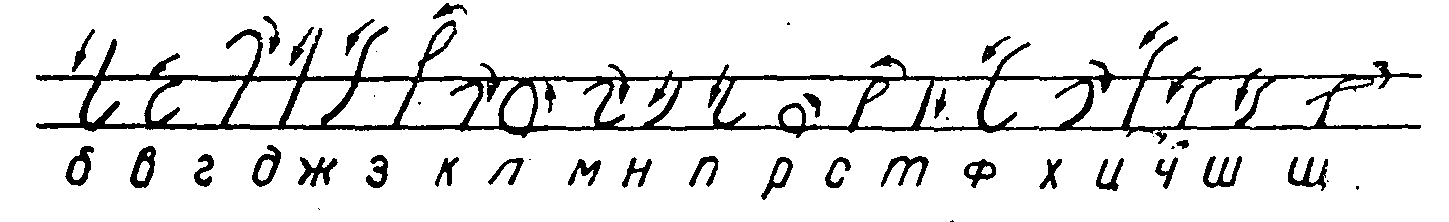 б в г д ж з к л м н п р с т ф х ц ч ш щ .